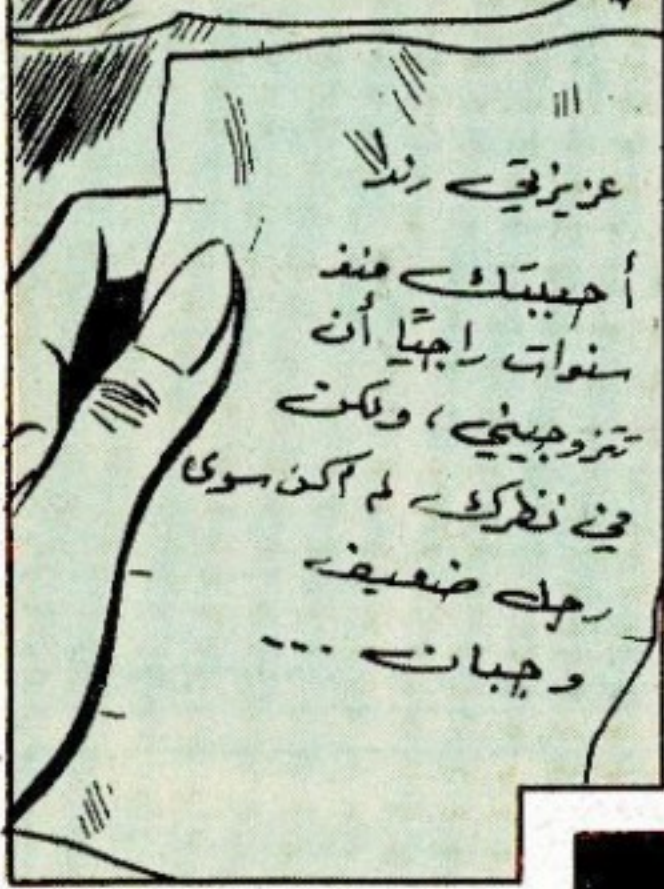 عزيزتي رندا
أحببتك منذ
سنوات راجيًا أن
تتزوجيني، ولكن
في نظرك، لم أكن سوى
رجل ضعيف
وجبان ...